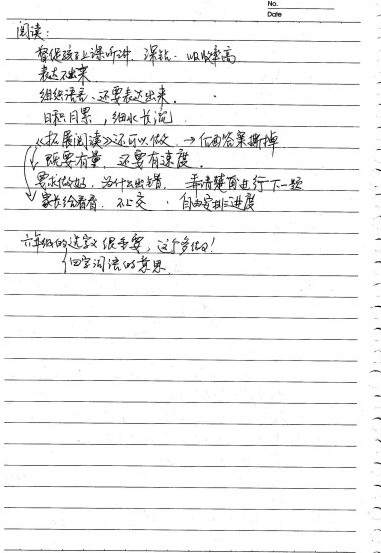 No.
Date
阅读：
督促孩子上课听讲 深钻. 吸收率高
表达不出来
组织语言、还要表达出来.
日积月累，细水长流.
《拓展阅读》还可以做 → 后面答案撕掉
既要有量，还要有速度.
要求做好，为什么出错，弄清楚再进行下一题
家长给看看，不上交. 自由安排进度
六年级的选字义很重要，这个多做！
四字词语的意思.